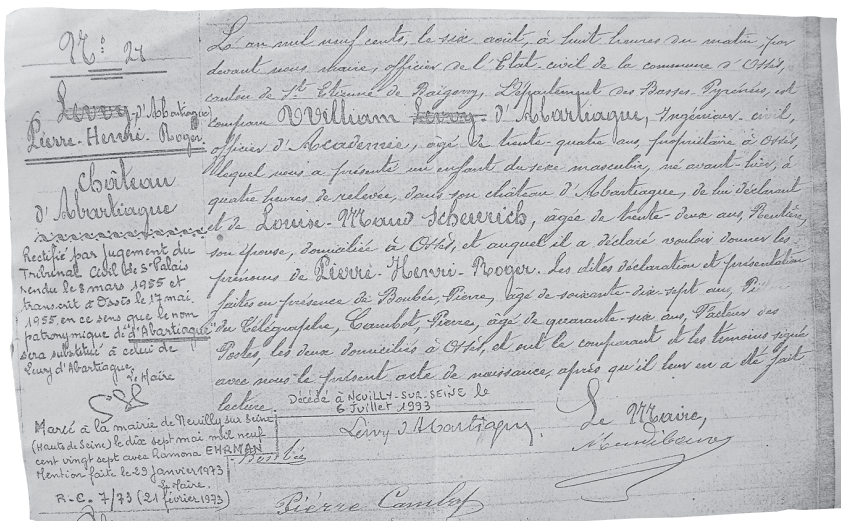 N.° 27
Levvy-d'Abartiague
Pierre-Henri-Roger.
Château
d'Abartiague
Rectifié par Jugement du
Tribunal Civil de St Palais
rendu le 8 mars 1955 et
transcrit à Ossès le 17 mai
1955, en ce sens que le nom
patronymique de "d'Abartiague"
sera substitué à celui de
Levvy d'Abartiague.
Le Maire
Marié à la mairie de Neuilly sur Seine
(Hauts de Seine) le dix sept mai mil neuf
cent vingt sept avec Ramona EHRMAN
Mention faite le 29 Janvier 1973
Le Maire.
R.C. 7/73 (21 février 1973)
L'an mil neuf cents, le six août, à huit heures du matin, par
devant nous Maire, officier de l'Etat-civil de la commune d'Ossès,
canton de St Etienne de Baïgorry, Département des Basses-Pyrénées, est
comparu William Levvy-d'Abartiague, Ingénieur civil,
officier d'Académie, âgé de trente-quatre ans, propriétaire à Ossès,
lequel nous a présenté un enfant du sexe masculin, né avant-hier, à
quatre heures de relevée, dans son château d'Abartiague, de lui déclarant
et de Louise-Maud Scheurich, âgée de trente-deux ans, Rentière,
son épouse, domiciliée à Ossès, et auquel il a déclaré vouloir donner les
prénoms de Pierre-Henri-Roger. Les dites déclaration et présentation
faites en présence de Boubée-Pierre, âgé de soixante-dix-sept ans,
du Télégraphe, Cambot, Pierre, âgé de quarante-six ans, Facteur des
Postes, les deux domiciliés à Ossès, et ont le comparant et les témoins signé
avec nous le présent acte de naissance, après qu'il leur en a été fait
lecture.
Décédé à NEUILLY-SUR-SEINE le
6 Juillet 1993
Levvy d'Abartiague.
Le Maire,
Boubée
Pierre Cambot